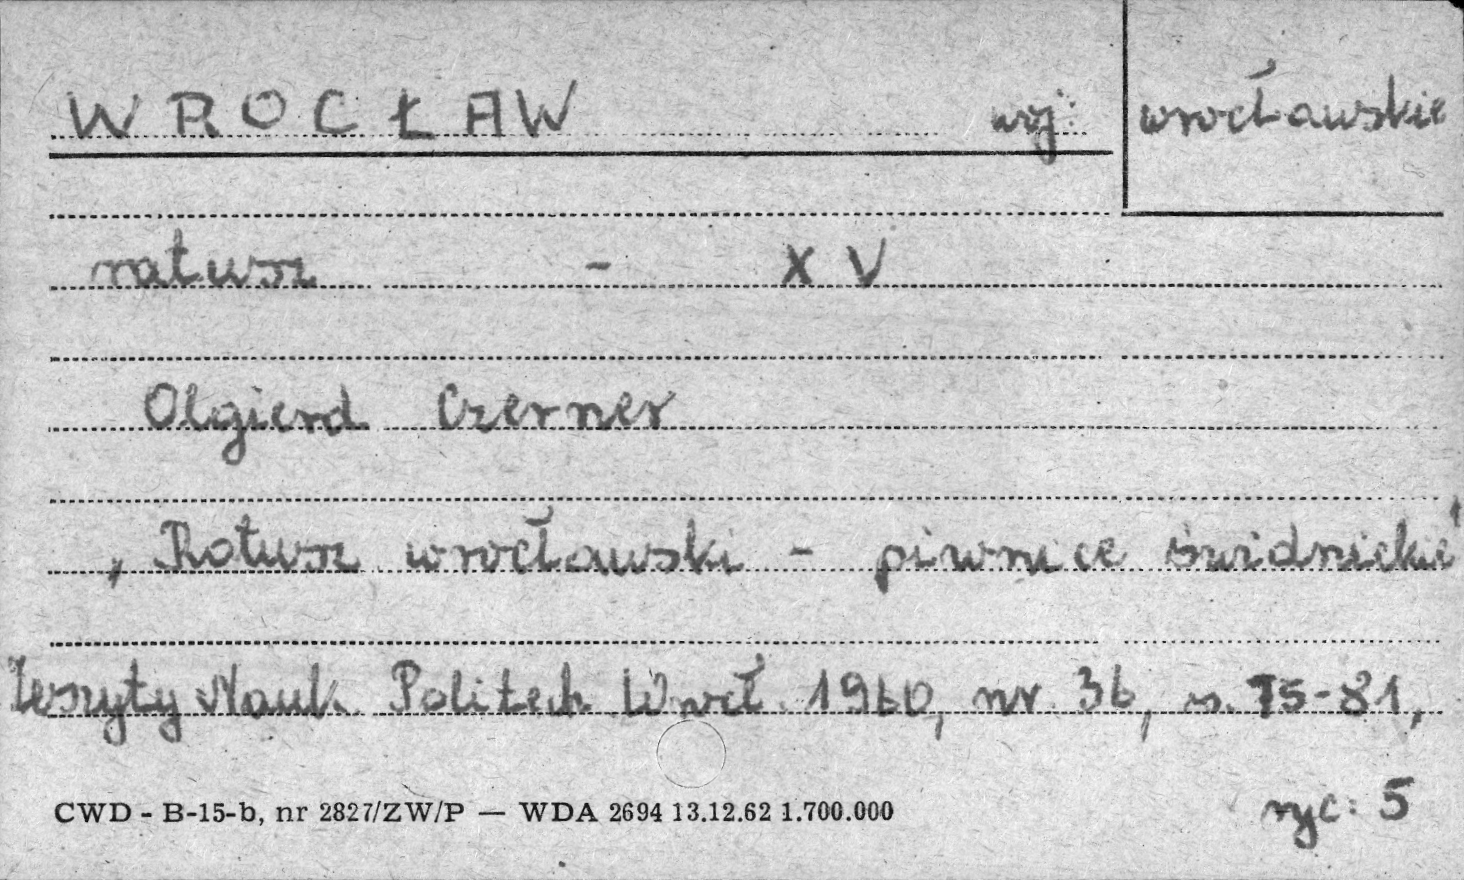 WROCŁAW woj: wrocławskie
ratusz - XV
Olgierd Czerner
„Ratusz wrocławski - piwnice świdnickie"
Zeszyty Nauk. Politech. Wrocł. 1960, nr. 36, s. 75-81,
ryc: 5
CWD - B-15-b, nr 2827/ZW/P — WDA 2694 13.12.62 1.700.000